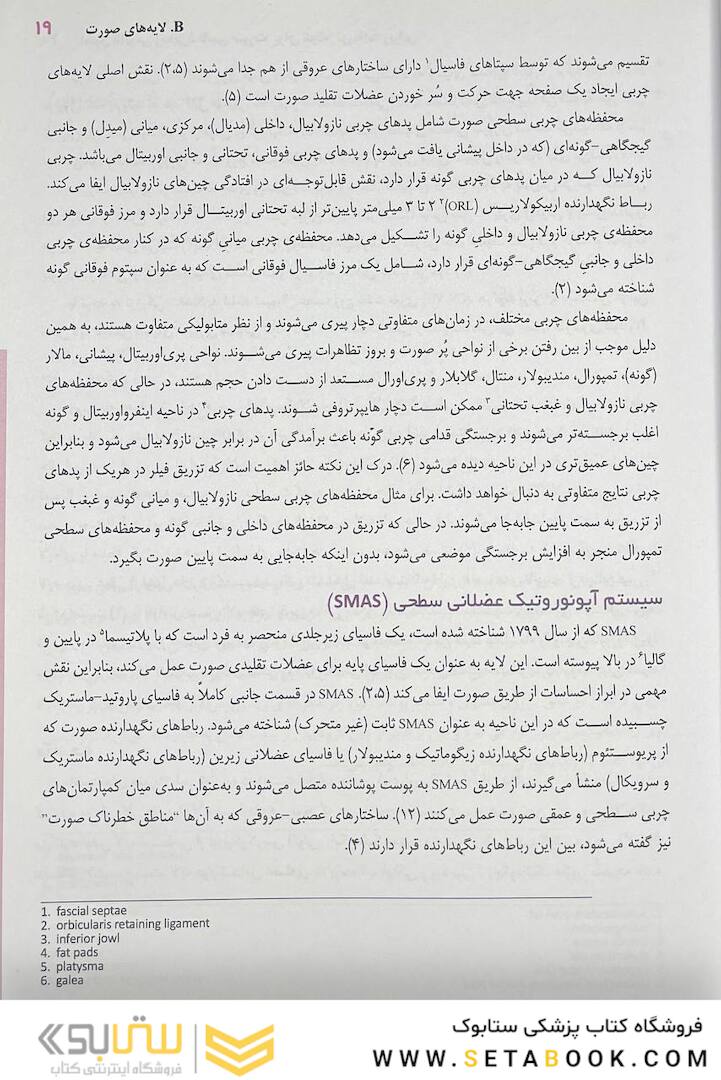 B. لایه‌های صورت ۱۹
تقسیم می‌شوند که توسط سپتاهای فاسیال۱ دارای ساختارهای عروقی از هم جدا می‌شوند (۲،۵). نقش اصلی لایه‌های
چربی ایجاد یک صفحه جهت حرکت و سُر خوردن عضلات تقلید صورت است (۵).
محفظه‌های چربی سطحی صورت شامل پدهای چربی نازولابیال، داخلی (مدیال)، مرکزی، میانی (میدِل) و جانبی
گیجگاهی-گونه‌ای (که در داخل پیشانی یافت می‌شود) و پدهای چربی فوقانی، تحتانی و جانبی اوربیتال می‌باشد. چربی
نازولابیال کـه در میان پدهای چربی گونه قرار دارد، نقش قابل‌توجـه‌ای در افتادگی چین‌های نازولابیال ایفا می‌کند.
ربـاط نگهدارنده اربیکولاریـس (ORL)۲ ۲ تا ۳ میلی‌متر پایین‌تر از لبه تحتانی اوربیتـال قرار دارد و مرز فوقانی هر دو
محفظه‌ی چربی نازولابیال و داخلیِ گونه را تشـکیل می‌دهد. محفظه‌ی چربی میانیِ گونه که در کنار محفظه‌ی چربی
داخلی و جانبیِ گیجگاهی-گونه‌ای قرار دارد، شـامل یک مرز فاسـیال فوقانی اسـت که به عنوان سپتوم فوقانی گونه
شناخته می‌شود (۲).
محفظه‌های چربی مختلف، در زمان‌های متفاوتی دچار پیری می‌شوند و از نظر متابولیکی متفاوت هستند، به همین
دلیل موجب از بین رفتن برخی از نواحی پُر صورت و بروز تظاهرات پیری می‌شـوند. نواحی پری‌اوربیتال، پیشانی، مالار
(گونه)، تمپورال، مندیبولار، منتال، گلابلار و پری‌اورال مسـتعد از دسـت دادن حجم هستند، در حالی که محفظه‌های
چربی نازولابیال و غبغب تحتانی۳ ممکن اسـت دچار هایپرتروفی شـوند. پدهای چربی۴ در ناحیه اینفرواوربیتال و گونه
اغلب برجسـته‌تر می‌شوند و برجستگی قدامی چربی گونه باعث برآمدگی آن در برابر چین نازولابیال می‌شود و بنابراین
چین‌های عمیق‌تری در این ناحیه دیده می‌شود (۶). درک این نکته حائز اهمیت است که تزریق فیلر در هریک از پدهای
چربی نتایج متفاوتی به دنبال خواهد داشت. برای مثال محفظه‌های چربی سطحی نازولابیال، و میانی گونه و غبغب پس
از تزریق به سمت پایین جابه‌جا می‌شوند. در حالی که تزریق در محفظه‌های داخلی و جانبی گونه و محفظه‌های سطحی
تمپورال منجر به افزایش برجستگی موضعی می‌شود، بدون اینکه جابه‌جایی به سمت پایین صورت بگیرد.
سیستم آپونوروتیک عضلانی سطحی (SMAS)
SMAS که از سال ۱۷۹۹ شناخته شده است، یک فاسیای زیرجلدی منحصر به فرد است که با پلاتیسما۵ در پایین و
گالیا۶ در بالا پیوسته است. این لایه به عنوان یک فاسیای پایه برای عضلات تقلیدی صورت عمل می‌کند، بنابراین نقش
مهمی در ابراز احساسات از طریق صورت ایفا می‌کند (۲،۵). SMAS در قسمت جانبی کاملاً به فاسیای پاروتید-ماستریک
چسـبیده اسـت که در این ناحیه به عنوان SMAS ثابت (غیر متحرک) شناخته می‌شود. رباط‌های نگهدارنده صورت که
از پریوسـتئوم (رباط‌های نگهدارنده زیگوماتیک و مندیبولار) یا فاسیای عضلانی زیرین (رباط‌های نگهدارنده ماستریک
و سرویکال) منشأ می‌گیرند، از طریق SMAS به پوست پوشاننده متصل می‌شوند و به‌عنوان سدی میان کمپارتمان‌های
چربی سـطحی و عمقی صورت عمل می‌کنند (۱۲). ساختارهای عصبی-عروقی که به آن‌ها “مناطق خطرناک صورت”
نیز گفته می‌شود، بین این رباط‌های نگهدارنده قرار دارند (۴).
1. fascial septae
2. orbicularis retaining ligament
3. inferior jowl
4. fat pads
5. platysma
6. galea
فروشگاه کتاب پزشکی ستابوک
WWW.SETABOOK.COM
ستابوک
فروشگاه اینترنتی کتاب